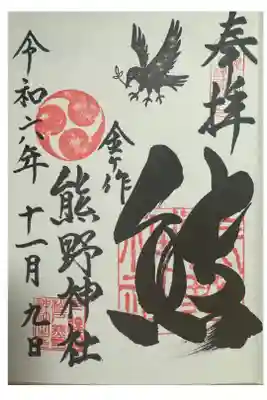 奉拝
熊
金ヶ作
熊野神社
令和六年十一月九日